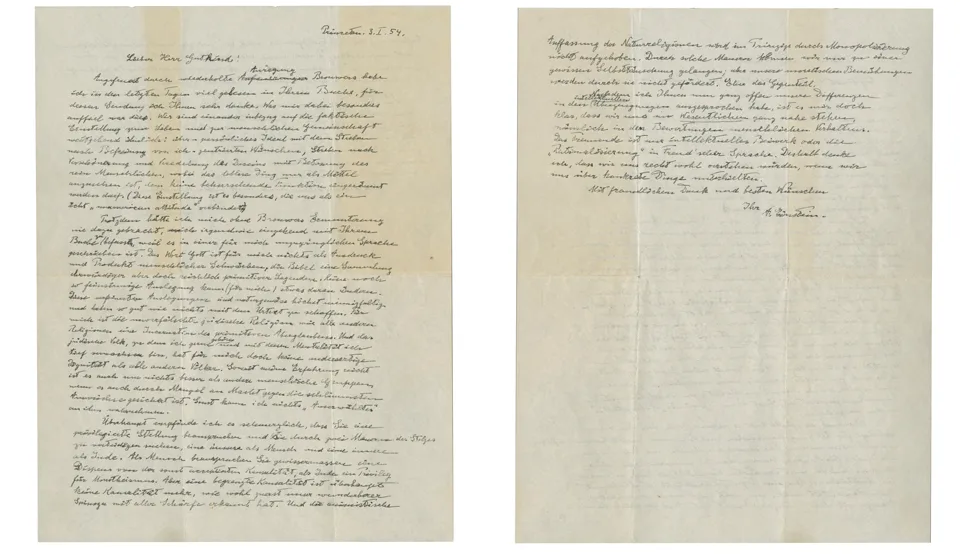 Princeton. 3. I. 54.
Lieber Herr Gutkind!
Angefeuert durch wiederholte Anregung Brouwers habe
ich in den letzten Tagen viel gelesen in Ihrem Buche, für
dessen Sendung ich Ihnen sehr danke. Was mir dabei besonders
auffiel war dies. Wir sind einander inbezug auf die faktische
Einstellung zum Leben und zur menschlichen Gemeinschaft
weitgehend ähnlich: über-persönliches Ideal mit dem Streben
nach Befreiung von ich-zentrierten Wünschen, Streben nach
Verschönerung und Veredelung des Daseins mit Betonung des
rein Menschlichen, wobei das leblose Ding nur als Mittel
anzusehen ist, dem keine beherrschende Funktion eingeräumt
werden darf. (Diese Einstellung ist es besonders, die uns als ein
echt „unamerican attitude" verbindet)
Trotzdem hätte ich mich ohne Brouwers Ermunterung
nie dazu gebracht, mich irgendwie eingehend mit Ihrem
Buche zu befassen, weil es in einer für mich unzugänglichen Sprache
geschrieben ist. Das Wort Gott ist für mich nichts als Ausdruck
und Produkt menschlicher Schwächen, die Bibel eine Sammlung
ehrwürdiger aber doch reichlich primitiver Legenden. Keine noch
so feinsinnige Auslegung kann (für mich) etwas daran ändern.
Diese verfeinerten Auslegungen sind naturgemäss höchst mannigfaltig
und haben so gut wie nichts mit dem Urtext zu schaffen. Für
mich ist die unverfälschte jüdische Religion wie alle anderen
Religionen eine Incarnation des primitiven Aberglaubens. Und das
jüdische Volk, zu dem ich gerne gehöre und mit dessen Mentalität ich
tief verwachsen bin, hat für mich doch keine andersartige
Dignität als alle anderen Völker. Soweit meine Erfahrung reicht
ist es auch um nichts besser als andere menschliche Gruppen,
wenn es auch durch Mangel an Macht gegen die schlimmsten
Auswüchse gesichert ist. Sonst kann ich nichts „Auserwähltes"
an ihm wahrnehmen.
Überhaupt empfinde ich es schmerzlich, dass Sie eine
privilegierte Stellung beanspruchen und sie durch zwei Mauern des Stolzes
zu verteidigen suchen, eine äussere als Mensch und eine innere
als Jude. Als Mensch beanspruchen Sie gewissermassen einen
Dispens von der sonst acceptierten Kausalität, als Jude ein Privileg
für Monotheismus. Aber eine begrenzte Kausalität ist überhaupt
keine Kausalität mehr, wie wohl zuerst unser wunderbarer
Spinoza mit aller Schärfe erkannt hat. Und die animistische
Auffassung der Naturreligionen wird im Prinzip durch Monopolisierung
nicht aufgehoben. Durch solche Mauern können wir nur zu einer
gewissen Selbsttäuschung gelangen; aber unsere moralischen Bemühungen
werden durch sie nicht gefördert. Eher das Gegenteil.
Nachdem ich Ihnen nun ganz offen unsere Differenzen
in den intellektuellen Überzeugungen ausgesprochen habe, ist es mir doch
klar, dass wir uns im Wesentlichen ganz nahe stehen,
nämlich in den Bewertungen menschlichen Verhaltens.
Das Trennende ist nur intellektuelles Beiwerk oder die
„Rationalisierung" in Freud'scher Sprache. Deshalb denke
ich, dass wir uns recht wohl verstehen würden, wenn wir
uns über konkrete Dinge unterhielten.
Mit freundlichem Dank und besten Wünschen
Ihr A. Einstein.